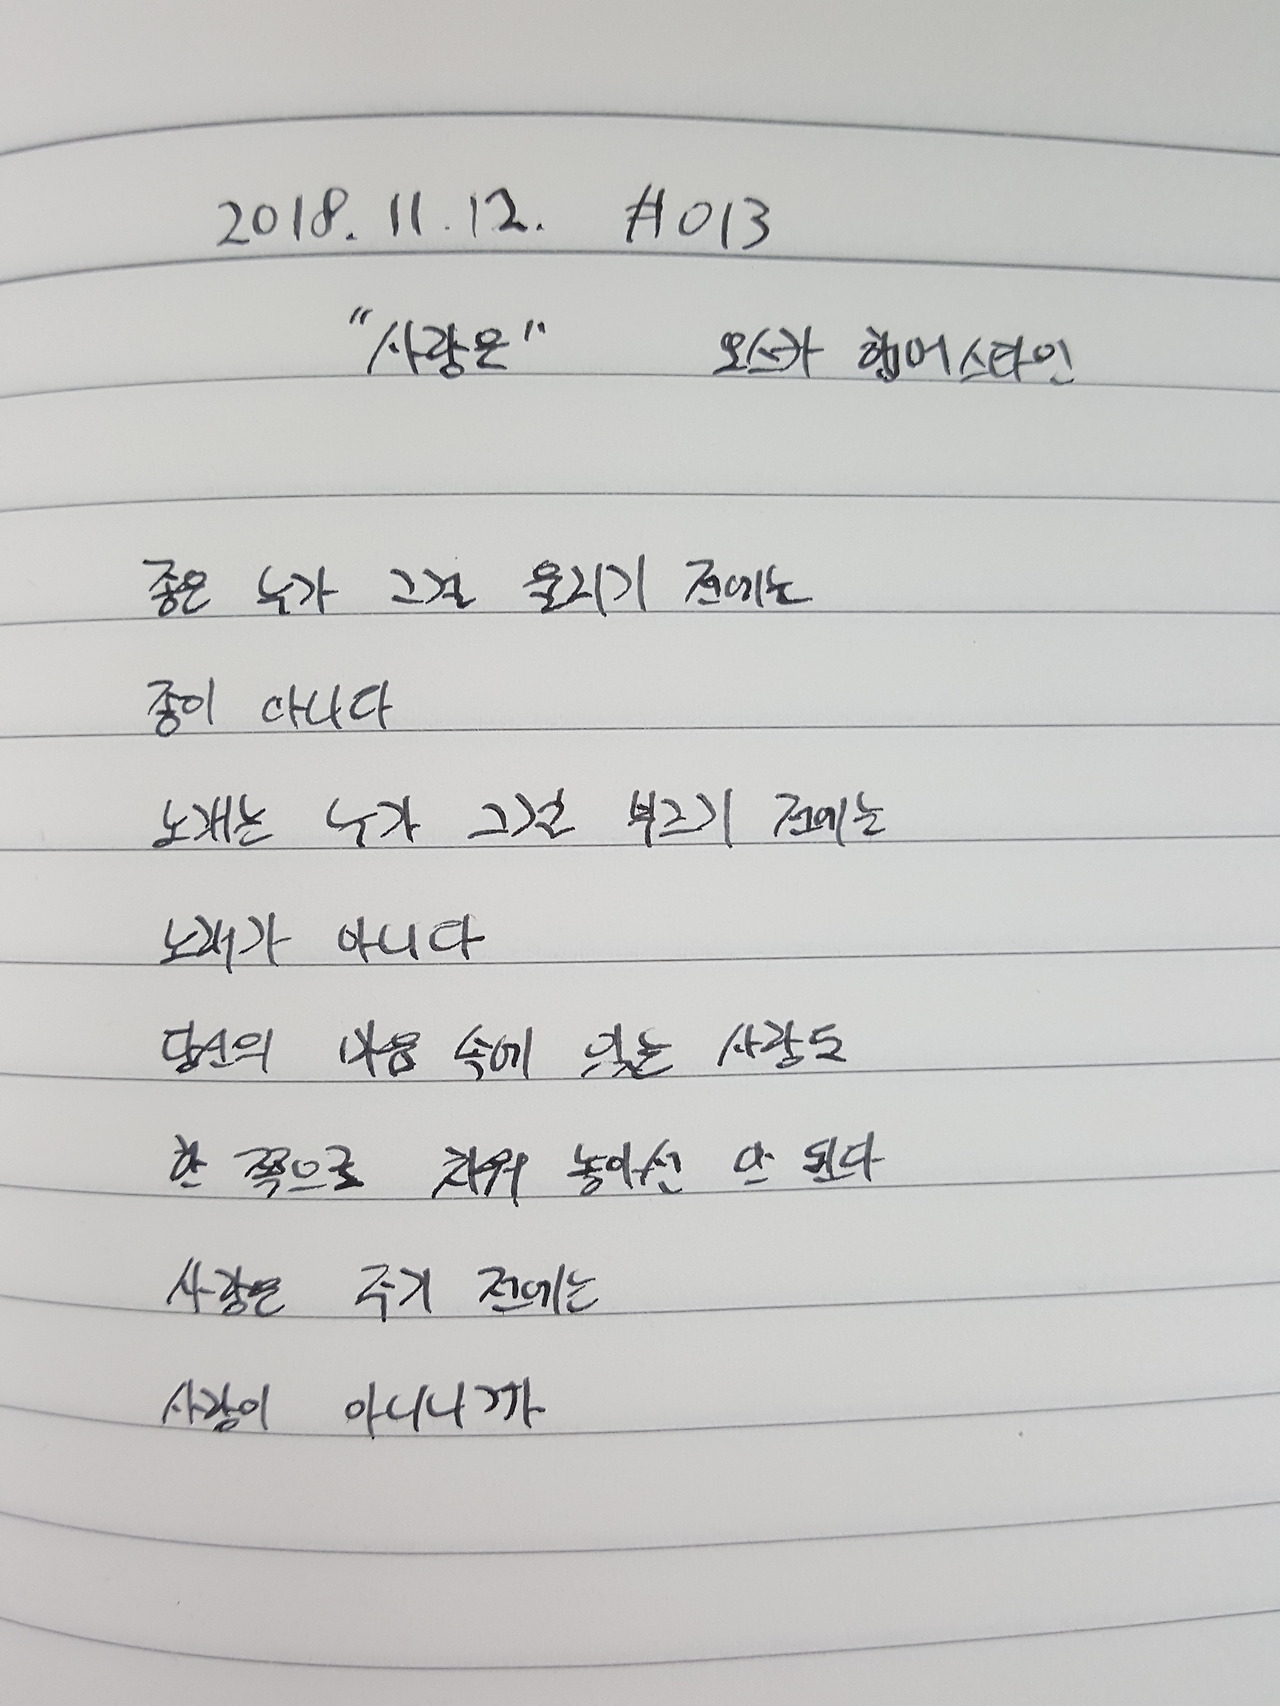 2018. 11. 12. #013
"사랑은" 오스카 햄머스타인
종은 누가 그걸 울리기 전에는
종이 아니다
노래는 누가 그걸 부르기 전에는
노래가 아니다
당신의 마음 속에 있는 사랑도
한 쪽으로 치워 놓아선 안 된다
사랑은 주기 전에는
사랑이 아니니까